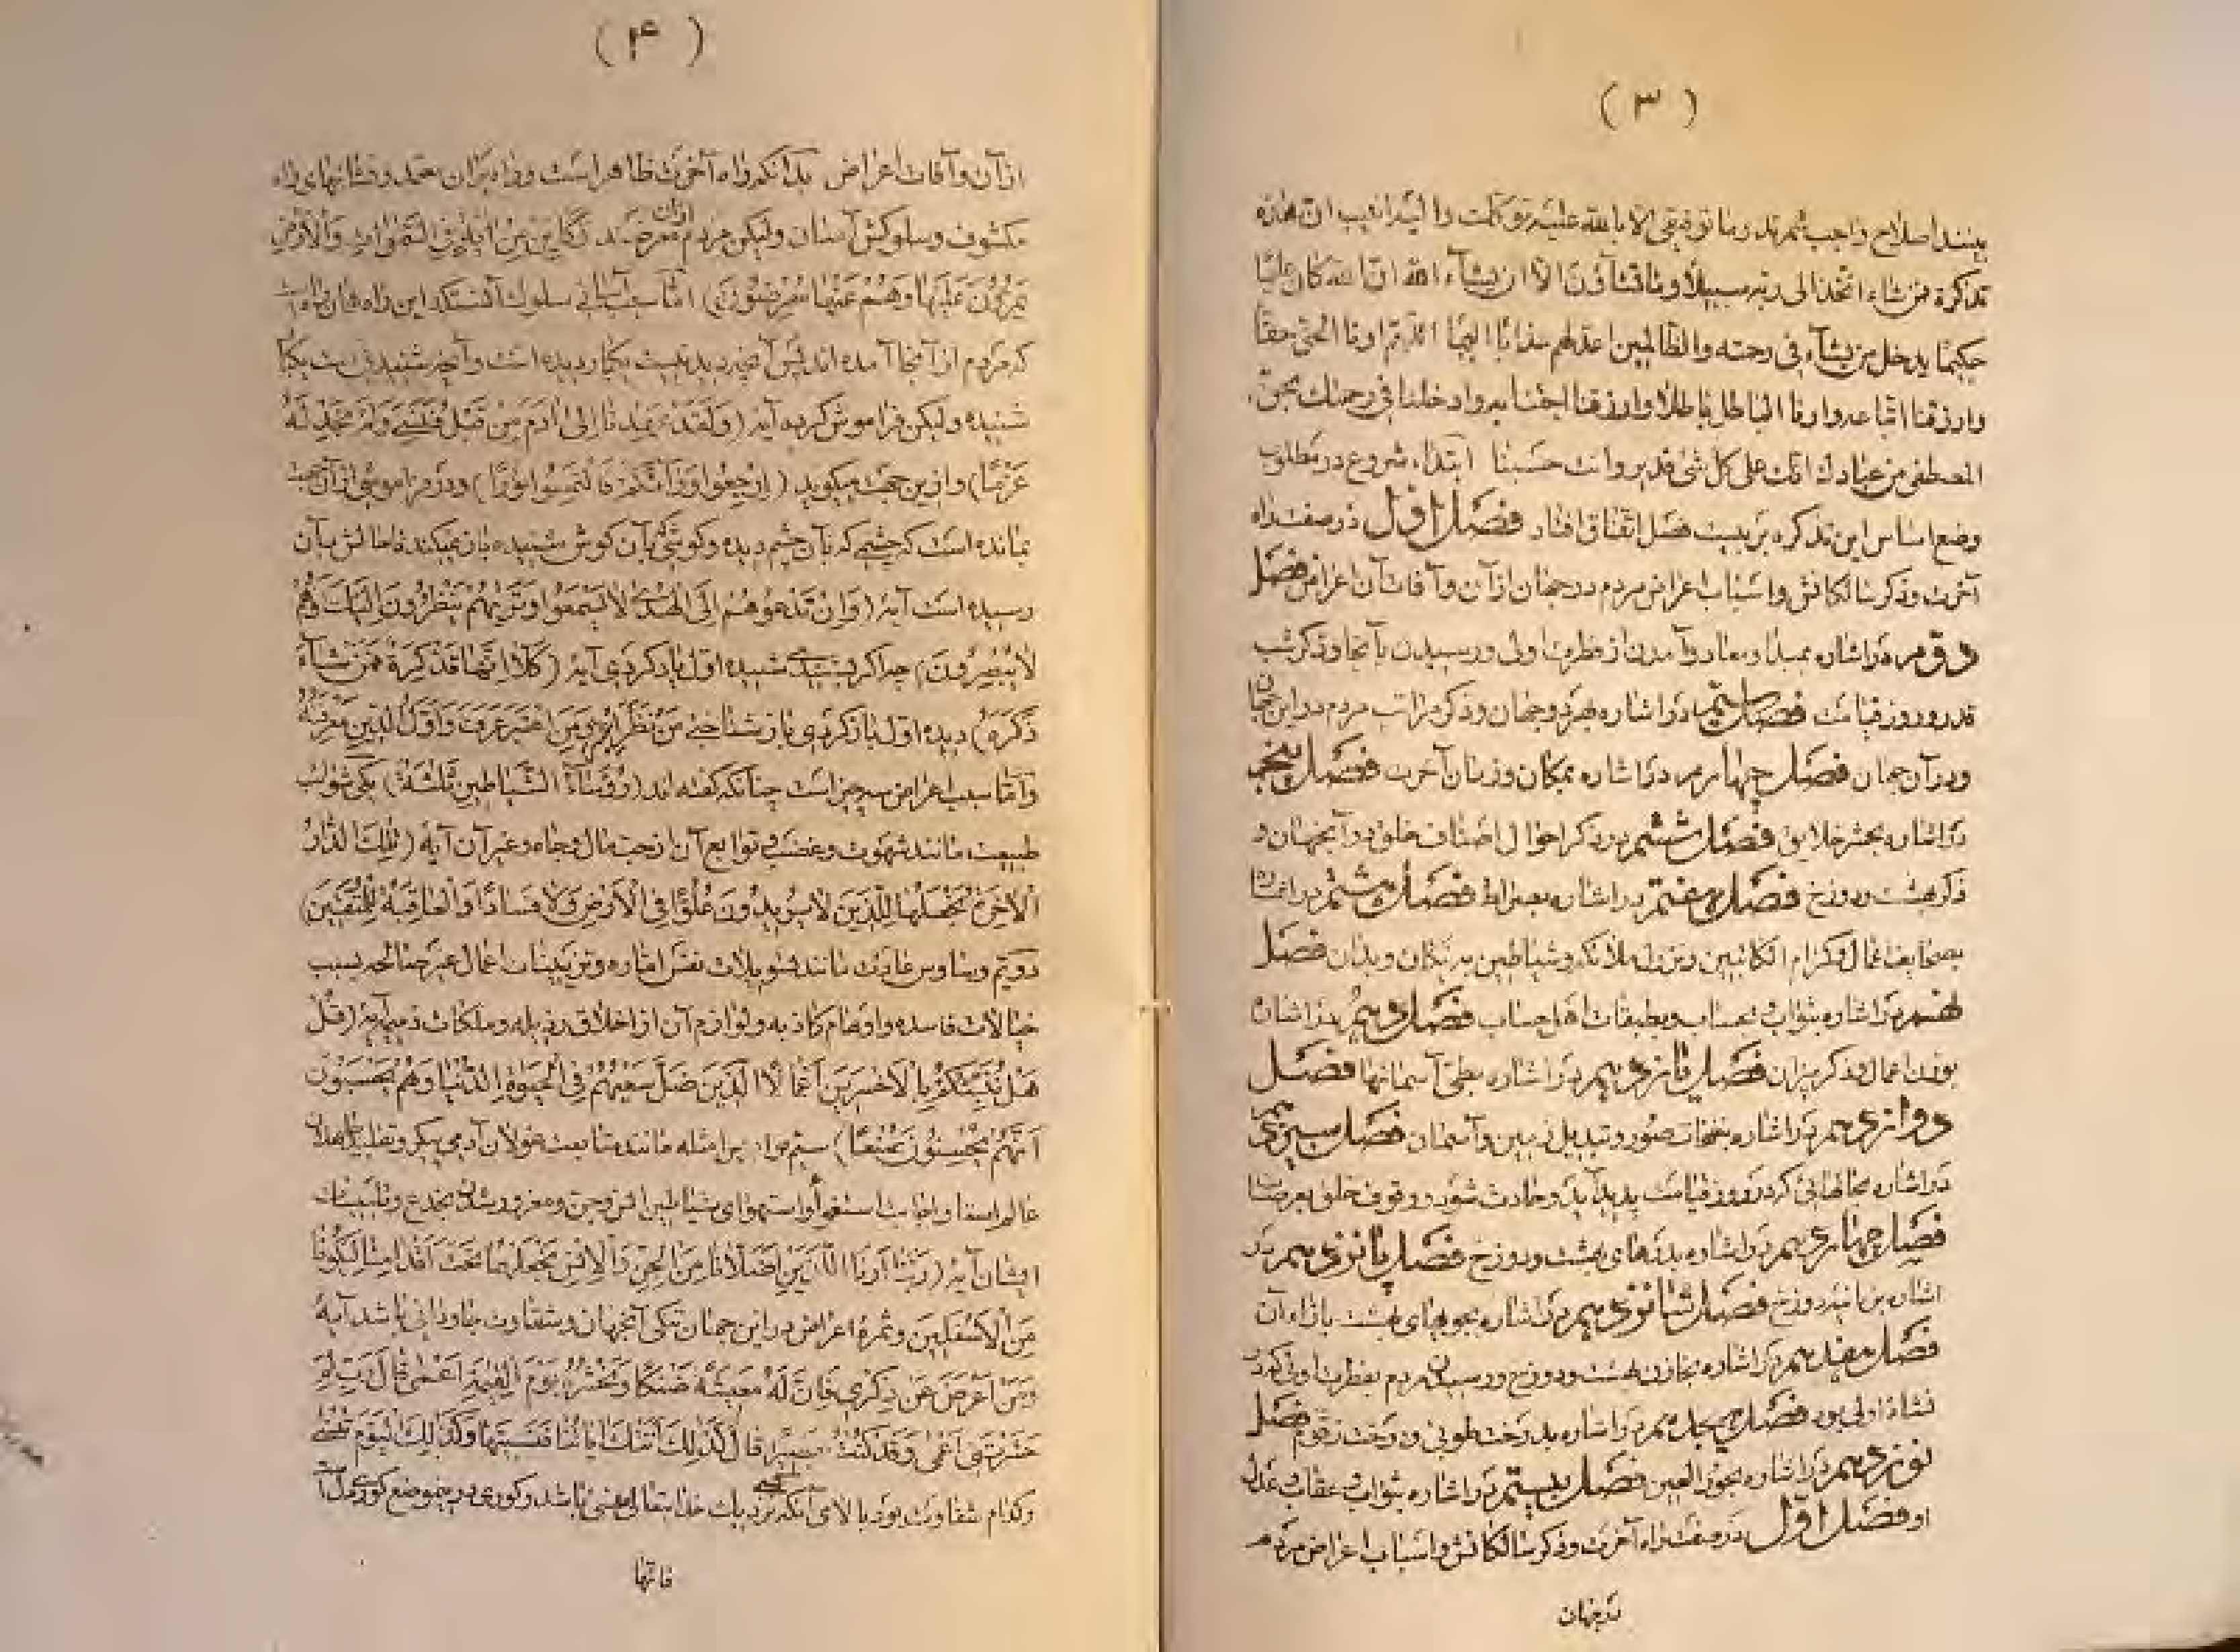 (۳)
بینند اصلاح واجب شمرند وما توفیقی الا بالله علیه توکلت والیه انیب ان هذه
تذکرة فمن شاء اتخذ الی ربه سبیلا وما تشاؤن الا ان یشاء الله ان الله کان علیما
حکیما یدخل من یشاء فی رحمته والظالمین اعد لهم عذابا الیما اللهم ارنا الحق حقا
وارزقنا اتباعه وارنا الباطل باطلا وارزقنا اجتنابه وادخلنا فی رحمتک بحق
المصطفین من عبادک انک علی کل شئ قدیر وانت حسبنا ابتداء شروع در مطلوب
وضع اساس این تذکره بر بیست فصل اتفاق افتاد فصل اول در صفت راه
آخرت وذکر سالکانش واسباب اعراض مردم در جهان از آن وآفات آن اعراض فصل
دوم در اشاره بمبدا ومعاد وآمدن از فطرت اولی ورسیدن بآنجا وذکر شب
قدر وروز قیامت فصل سیم در اشاره بهر دو جهان وذکر مراتب مردم در این جهان
ودر آن جهان فصل چهارم در اشاره بمکان وزمان آخرت فصل پنجم
در اشاره بحشر خلایق فصل ششم در ذکر احوال اصناف خلق در آنجهان و
ذکر بهشت ودوزخ فصل هفتم در اشاره بصراط فصل هشتم در اشاره
بصحایف اعمال وکرام الکاتبین ونزول ملائکه وشیاطین بر نیکان وبدان فصل
نهم در اشاره بثواب حساب وبطبقات اهل حساب فصل دهم در اشاره
بوزن اعمال وذکر میزان فصل یازدهم در اشاره بطی آسمانها فصل
دوازدهم در اشاره بنفحات صور وتبدیل زمین وآسمان فصل سیزدهم
در اشاره بحالهائی که در روز قیامت پدید آید وحادث شود ووقوف خلق بعرصات
فصل چهاردهم در اشاره بدرهای بهشت ودوزخ فصل پانزدهم در
اشاره بزبانیه دوزخ فصل شانزدهم در اشاره بجویهای بهشت بازاء آن
فصل هفدهم در اشاره بخازن بهشت ودوزخ ورسیدن مردم بفطرت اولی که در
نشاة اولی بود فصل هیجدهم در اشاره بدرخت طوبی ودرخت زقوم فصل
نوزدهم در اشاره بحور العین فصل بیستم در اشاره بثواب وعقاب وعدل
او فصل اول در صفت راه آخرت وذکر سالکانش واسباب اعراض مردم
در جهان
(۴)
از آن وآفات اعراض بدانکه راه آخرت ظاهر است وراه بران معتمد ونشانهای راه
مکشوف وسلوکش آسان ولیکن مردم از آن معرضند وَکَأَیِّنْ مِنْ آیَةٍ فِی السَّمٰوَاتِ وَالْأَرْضِ
یَمُرُّونَ عَلَیْهَا وَهُمْ عَنْهَا مُعْرِضُونَ) اما سبب آسانی سلوک آنستکه این راه همان راه است
که مردم از آنجا آمده اند پس آنچه دیدنیست یکبار دیده است وآنچه شنیدنی است یکبار
شنیده ولیکن فراموش کرده آیه (وَلَقَدْ عَهِدْنَا إِلَىٰ آدَمَ مِنْ قَبْلُ فَنَسِیَ وَلَمْ نَجِدْ لَهُ
عَزْمًا) وازین جهت میگوید (اِرْجِعُوا وَرَاءَکُمْ فَالْتَمِسُوا نُورًا) ودر فراموشی از آن جهت
بمانده است که چشمی که بآن چشم دیده وگوشی که بآن گوش شنیده باز نمیکند تا حالش بآن
رسیده است آیه (وَإِنْ تَدْعُوهُمْ إِلَى الْهُدَىٰ لَا یَسْمَعُوا وَتَرَیٰهُمْ یَنْظُرُونَ إِلَیْکَ وَهُمْ
لَا یُبْصِرُونَ) چه اگر بشنیدی شنیده اول یاد کردی آیه (کَلَّا إِنَّهَا تَذْکِرَةٌ فَمَنْ شَآءَ
ذَکَرَهُ) دیده اول باز کردی باز شناختی مَنْ نَظَرَ اعْتَبَرَ وَمَنِ اعْتَبَرَ عَرَفَ وَأَوَّلُ الدِّینِ مَعْرِفَتُهُ
واما سبب اعراض سه چیز است چنانکه گفته اند (رُؤَسَاءُ الشَّیَاطِینِ ثَلَاثَةٌ) یکی شوائب
طبیعت مانند شهوت وغضب وتوابع آن از حب مال وجاه وغیر آن آیه (تِلْکَ الدَّارُ
الْآخِرَةُ نَجْعَلُهَا لِلَّذِینَ لَا یُرِیدُونَ عُلُوًّا فِی الْأَرْضِ وَلَا فَسَادًا وَالْعَاقِبَةُ لِلْمُتَّقِینَ)
دویم وساوس عادت مانند تسویلات نفس اماره وتزیینات اعمال غیر صالحه بسبب
خیالات فاسده واوهام کاذبه ولوازم آن از اخلاق رذیله وملکات ذمیمه آیه (قُلْ
هَلْ نُنَبِّئُکُمْ بِالْأَخْسَرِینَ أَعْمَالًا الَّذِینَ ضَلَّ سَعْیُهُمْ فِی الْحَیٰوةِ الدُّنْیَا وَهُمْ یَحْسَبُونَ
أَنَّهُمْ یُحْسِنُونَ صُنْعًا) سیم امثله مانند متابعت غولان آدمی پیکر وتقلید جاهلان
عالم نما واجابت استغواء واستهوای شیاطین انس وجن ومغرور شدن بخدع وتلبیسات
ایشان آیه (رَبَّنَا أَرِنَا الَّذَیْنِ أَضَلَّانَا مِنَ الْجِنِّ وَالْإِنْسِ نَجْعَلْهُمَا تَحْتَ أَقْدَامِنَا لِیَکُونَا
مِنَ الْأَسْفَلِینَ وثمره اعراض در این جهان تنگی آنجهان وشقاوت جاودانی باشد آیه
وَمَنْ أَعْرَضَ عَنْ ذِکْرِی فَإِنَّ لَهُ مَعِیشَةً ضَنْکًا وَنَحْشُرُهُ یَوْمَ الْقِیٰمَةِ أَعْمَىٰ قَالَ رَبِّ لِمَ
حَشَرْتَنِی أَعْمَىٰ وَقَدْ کُنْتُ بَصِیرًا قَالَ کَذٰلِکَ أَتَتْکَ آیَاتُنَا فَنَسِیتَهَا وَکَذٰلِکَ الْیَوْمَ تُنْسَىٰ
وکدام شقاوت بود بالای آنکه کسی نزدیک خدا یتعالی منسی باشد وکوری در این موضع کوری دل است
فانها